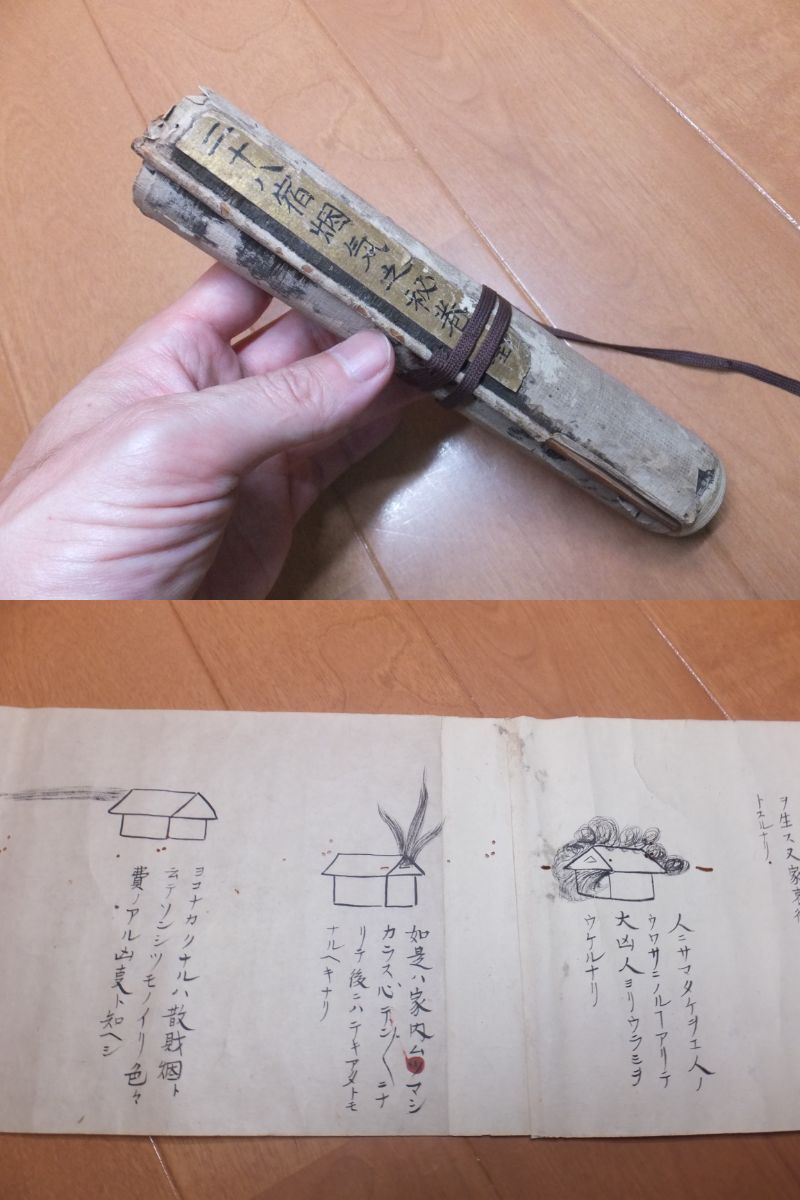 二十八宿烟気之秘巻
ヲ生ス又家衰
トスルナリ
人ニサマタケヲエ人ノ
ウワサニノルヿアリテ
大凶人ヨリウラミヲ
ウケルナリ
如是ハ家内ムツマシ
カラス心デン〱ニナ
リテ後ニハテキアタトモ
ナルヘキナリ
ヨコナカクナルハ散財烟ト
云テソンシツモノイリ色々
費ノアル凶夏ト知ヘシ